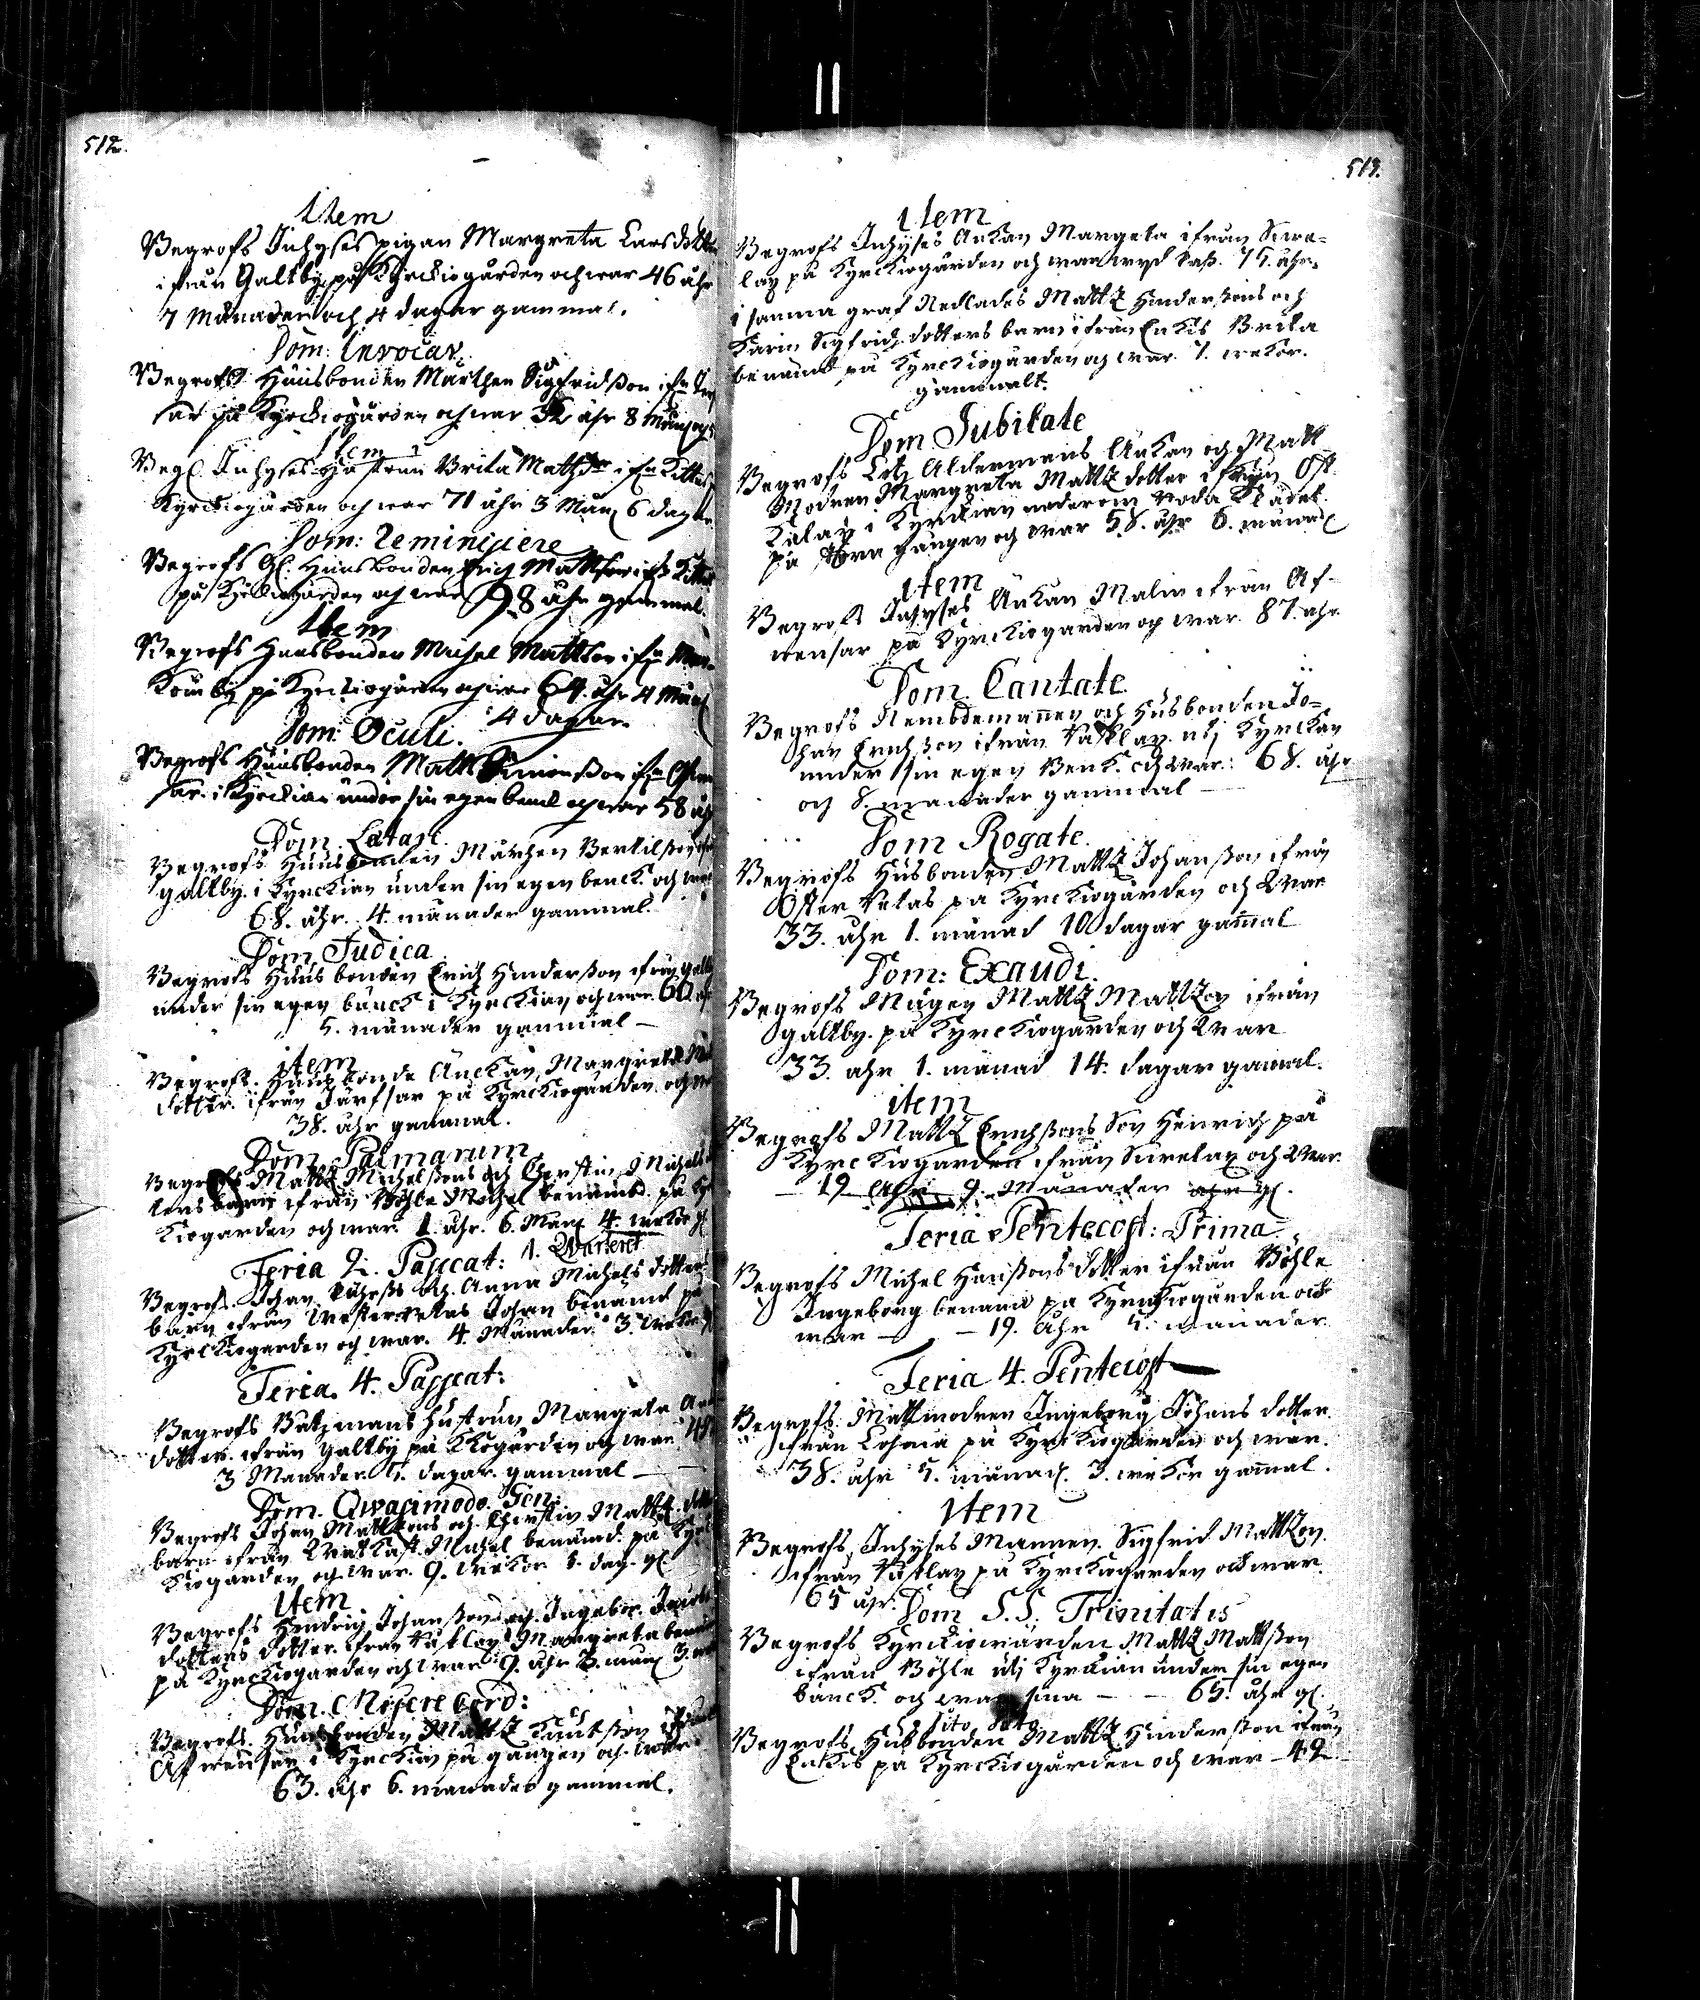 512.
Item
Begrofs Inhyses pigan Margreta Larsdotter
ifrån Galtby på Kyrckiogården och war 46 åhr
7 Månader och 4 dagar gammal.
Dom: Invocav.
Begrofs Huusbonden Mårthen Sigfridsson
sar på Kyrckiogården och war 8 Mån
Item
Begr Inhyses Hustrun Brita Mathsdr
Kyrckiogården och war 71 åhr 3 Mån 6 dagar
Dom: Reminiscere
Begrofs Gl: Huusbonden Erich Mattson
på Kyrckiogården och war 98 åhr gammal.
Item
Begrofs Huusbonden Michel Mattson
by på Kyrckiogården och war 64. åhr 4 Mån
4 dagar.
Dom: Oculi.
Begrofs Huusbonden Matts Simonsson
sar i Kyrckian under sin egen benck och war 58 åh
Dom. Lætare
Begrofs Huusbonden Mårthen Bertilsson
galtby i Kyrckian under sin egen benck och war
68. åhr 4 månader gammal.
Dom. Judica
Begrofs Huus bonden Erich Hindersson ifrån galt
under sin egen bänck i Kyrckian och war 60
5. månader gammal —
item
Begrofs. Huusbonde Änckan Margreta
dotter ifrån Järfsar på Kyrckiogården och
38. åhr gammal.
Dom. Palmarum
Begrofs Mattz Michelssons och Cherstin Michels
ters barn ifrån Böhle Michel benämd på Kyr
kiogården och war. 1 åhr. 6. Mån 4. wekor
Feria 2. Pascat: 1. Qvarteret
Begrofs. Johan och Anna Michels dotters
barn ifrån Westerretas Johan benämd på
Kyrckiogården och war. 4. Månader 3. wekor
Feria. 4. Pascat:
Begrofs Båtzmans hustrun Margeta
dotter ifrån galtby på Kiogården och war
3 Månader 5. dagar gammal —
Dom. Qwasimodo. Gen:
Begrofs Johan Mattzons och Cherstin Mattz dott
barn ifrån Michel benämd på Kyrc
kiogården och war. 9. wekor 1. dag. gl
Item
Begrofs Hendrich Johanssons och Ingebor
dotters dotter ifrån Wästlax Margreta benäm
på Kyrckiogården och war 9. åhr 3. mån 3.
Dom. Misere Cord:
Begrofs. Huusbonden Mattz Knutsson
Afwensar i Kyrckian på gången och war
63. åhr 6. månader gammal.
513.
item
Begrofs Inhyses Ankan Margeta ifrån Sirwe=
lax på Kyrckiogården och war wyd 75. åhr.
i samma graf Nedlades Mattz Hinderssons och
Karin Sigfridz dotters barn ifrån Enkis Brita
benämd på Kyrckiogården och war. 7. wekor.
gammalt.
Dom Jubilate
Begrofs Aldermans Ankan och Matt
Modren Margreta Mattz dotter ifrån Ost
Kalax i Kyrckian nederom Norda
på stora gången och war 58. åhr 6. månad
item
Begrofs Inhyses Änkan Malin ifrån Af=
wensar på Kyrckiogården och war. 87. åhr
Dom. Cantate.
Begrofs Nembdemannen och Husbonden Jo=
han Erichsson ifrån Wästlax utj Kyrckan
under sin egen Benk och war: 68. åhr
och 8. månader gammal —
Dom Rogate.
Begrofs Husbonden Mattz Johansson ifrån
Öster Retas på Kyrckiogården och war
33. åhr 1. månad 10 dagar gammal
Dom: Exaudi.
Begrofs Mågen Mattz Mattzon ifrån
galtby på Kyrckiogården och war
33. ahr 1. månad 14. dagar gamal.
item
Begrofs Mattz Erichssons Son Henrich på
Kyrckiogården ifrån Sirwelax och war.
— 19 åhr 9. Månader åhr gl.
Feria Pentecost: Prima
Begrofs Michel Hanssons dotter ifrån Böhle
Ingeborg benämd på Kyrckiogården och
war — — 19. åhr 5. månader
Feria 4. Pentecost
Begrofs. Mattmodren Ingeborg Johans dotter
ifrån Lohma på Kyrckiogården och war.
38. åhr 5. månad. 3. wekor gamal.
Item
Begrofs Inhyses Mannen Sigfrid Mattzon
ifrån Wästlax på Kyrckiogården och war.
65 åhr.
Dom S.S. Trinitatis
Begrofs Kyrckiowärden Mattz Mattsson
ifrån Böhle utj Kyrckian under sin egen
bänck och war sina — — 65. åhr gl.
Dito Dato
Begrofs Husbonden Mattz Hindersson ifrån
Enkis på Kyrckiogården och war 42